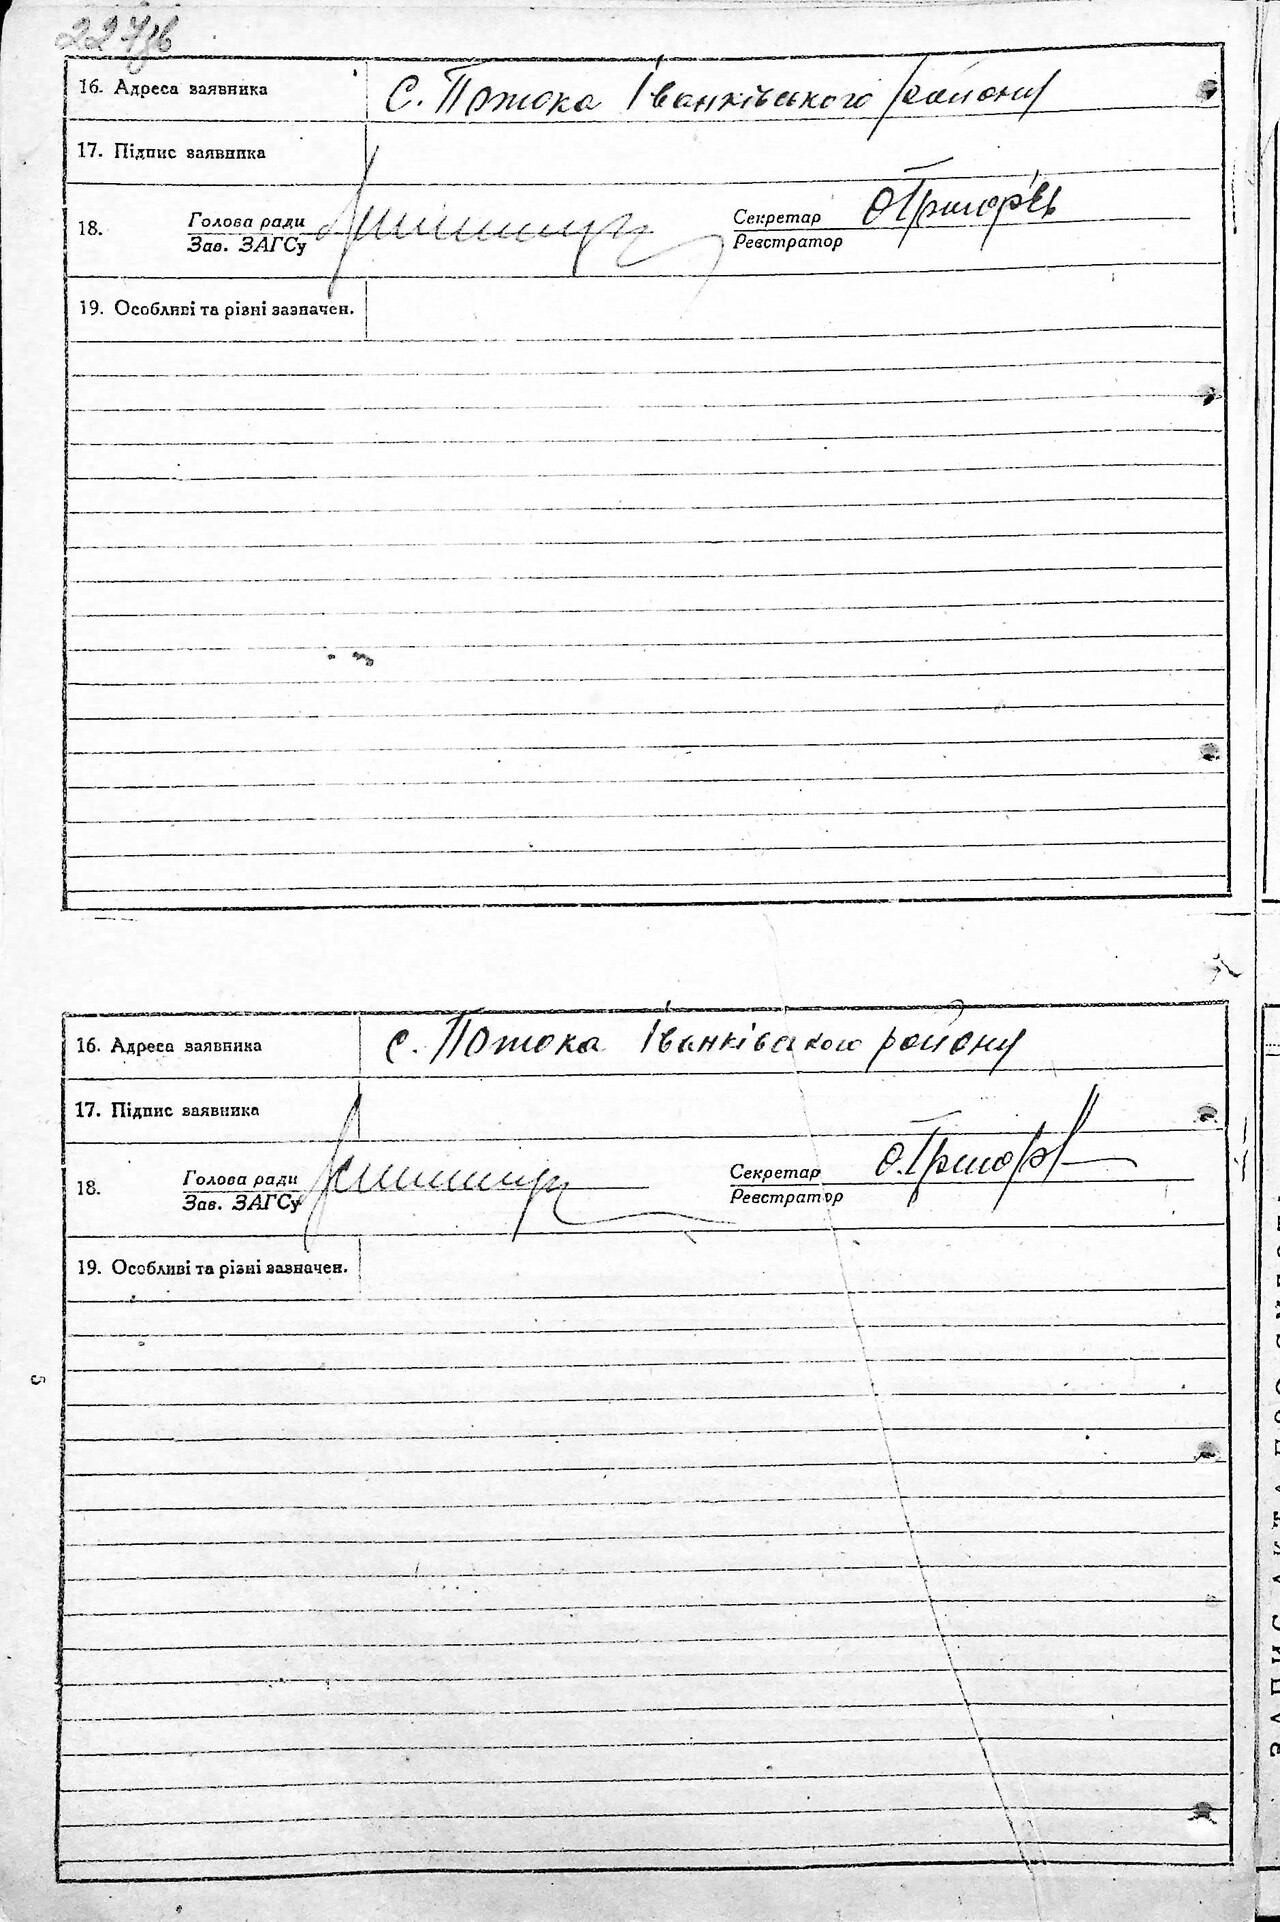 227зв
16. Адреса заявника с. Потока Іванківського району
17. Підпис заявника
18. Голова ради Секретар О.Григор'єв
Зав. ЗАГСу Реєстратор
19. Особливі та різні зазначен.
16. Адреса заявника с. Потока Іванківського району
17. Підпис заявника
18. Голова ради Секретар
Зав. ЗАГСу Реєстратор
19. Особливі та різні зазначен.
5